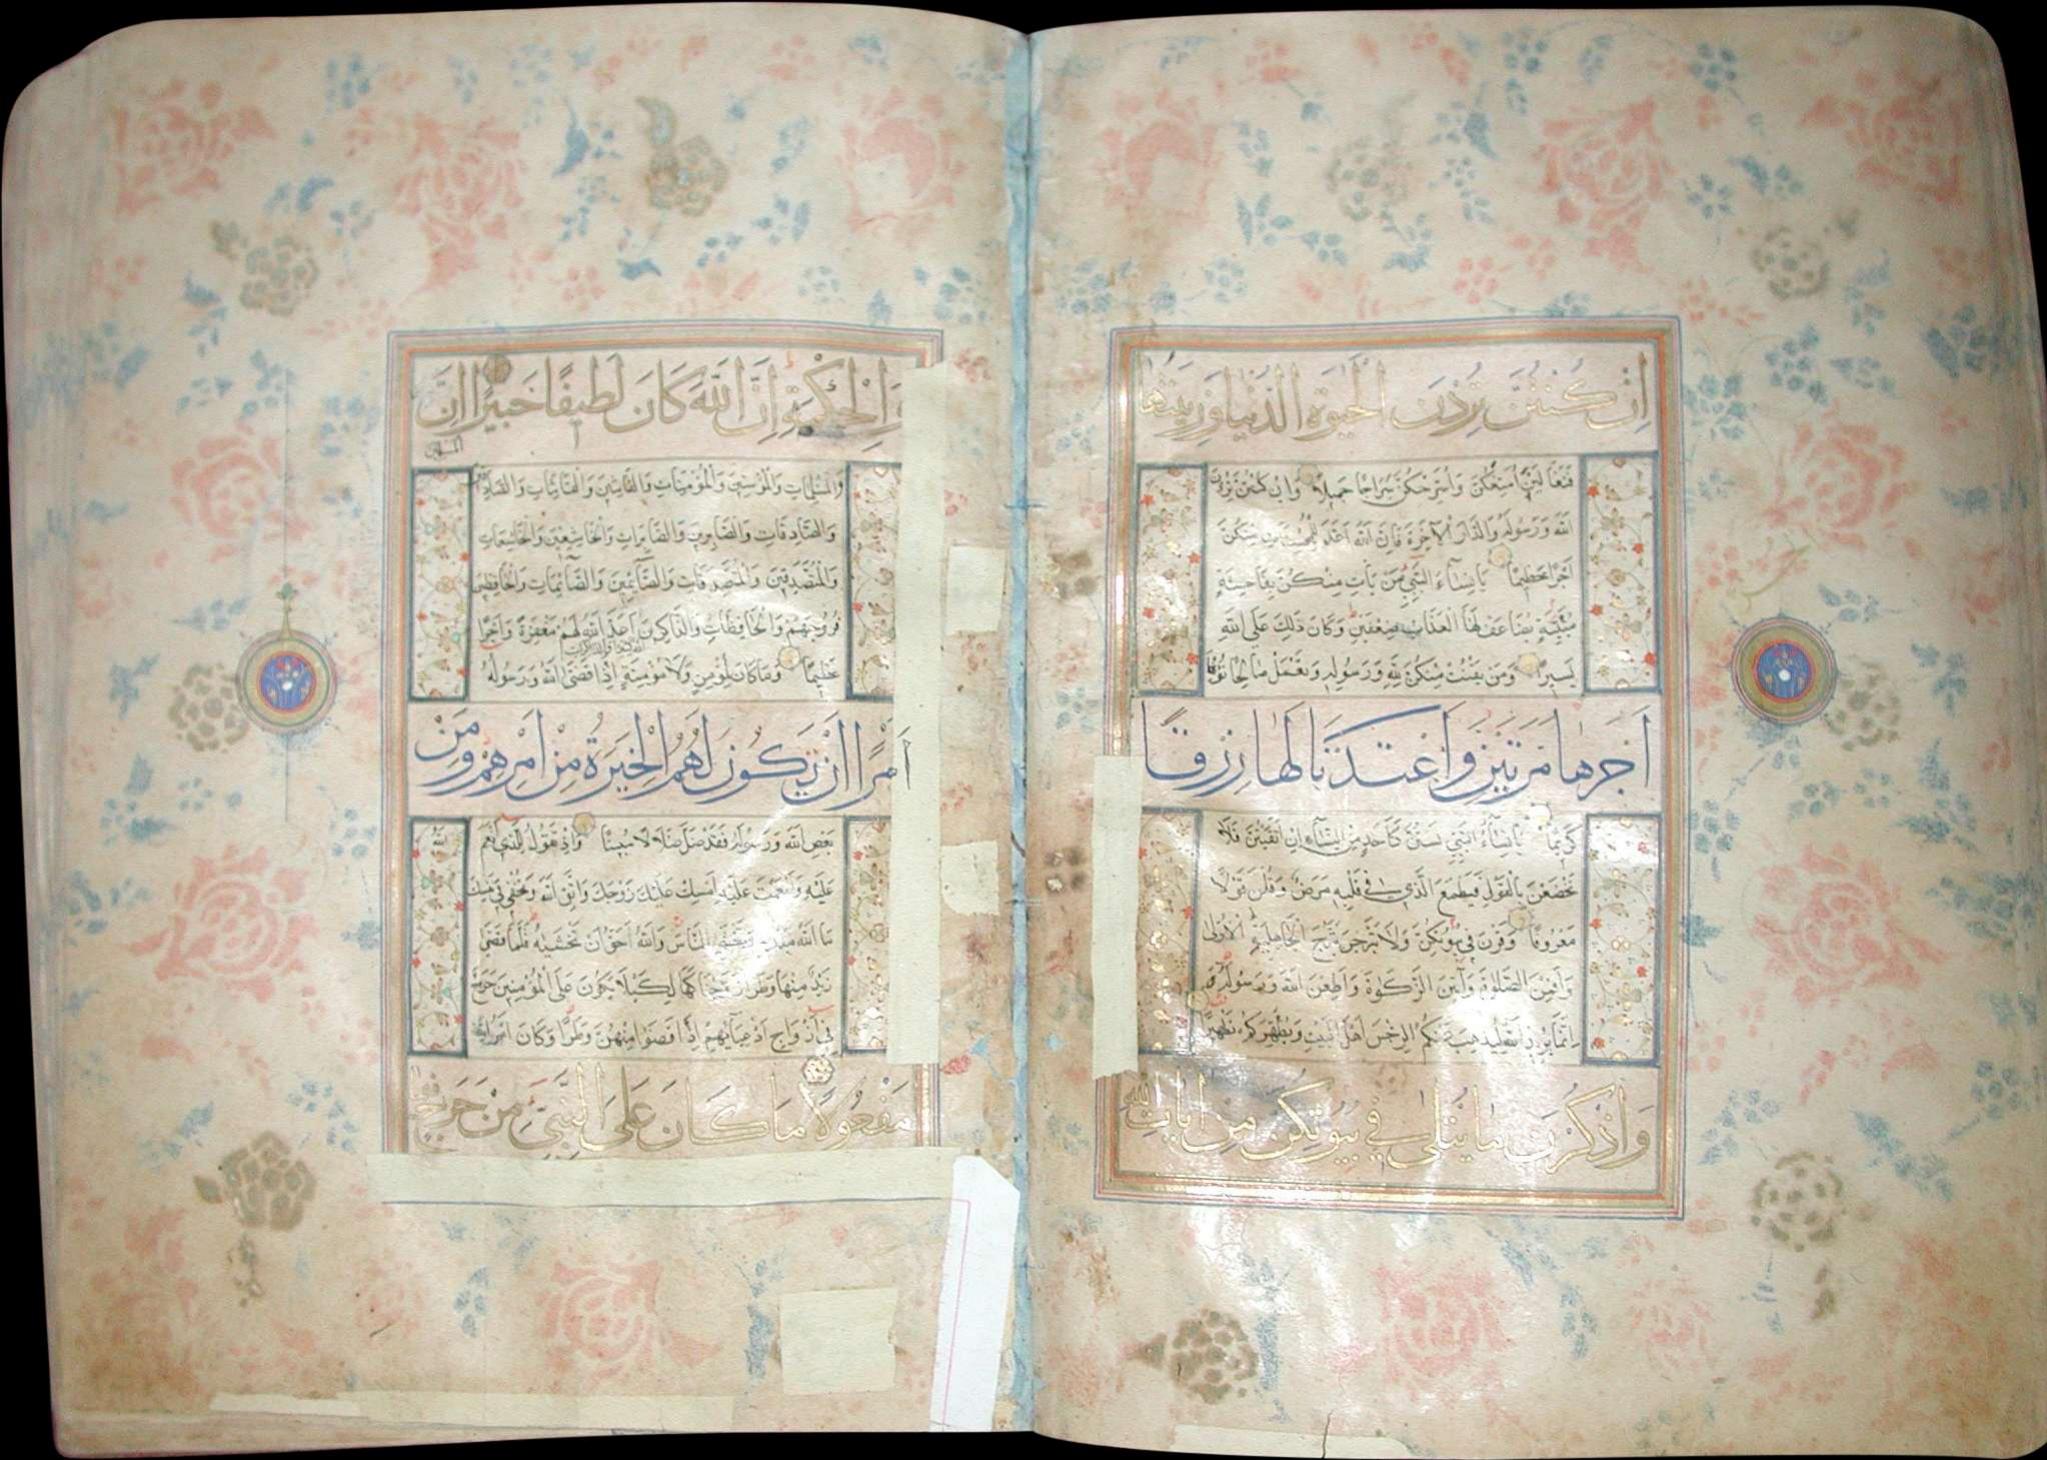 اِنْ كُنْتُنَّ تُرِدْنَ الْحَيٰوةَ الدُّنْيَا وَزِينَتَهَا
فَتَعَالَيْنَ اُمَتِّعْكُنَّ وَاُسَرِّحْكُنَّ سَرَاحًا جَمِيلًا وَاِنْ كُنْتُنَّ تُرِدْنَ
اللّٰهَ وَرَسُولَهُ وَالدَّارَ الْاٰخِرَةَ فَاِنَّ اللّٰهَ اَعَدَّ لِلْمُحْسِنَاتِ مِنْكُنَّ
اَجْرًا عَظِيمًا يَا نِسَاۤءَ النَّبِيِّ مَنْ يَأْتِ مِنْكُنَّ بِفَاحِشَةٍ
مُبَيِّنَةٍ يُضَاعَفْ لَهَا الْعَذَابُ ضِعْفَيْنِ وَكَانَ ذٰلِكَ عَلَى اللّٰهِ
يَسِيرًا وَمَنْ يَقْنُتْ مِنْكُنَّ لِلّٰهِ وَرَسُولِهِ وَتَعْمَلْ صَالِحًا نُؤْتِهَا
اَجْرَهَا مَرَّتَيْنِ وَاَعْتَدْنَا لَهَا رِزْقًا
كَرِيمًا يَا نِسَاۤءَ النَّبِيِّ لَسْتُنَّ كَاَحَدٍ مِنَ النِّسَاۤءِ اِنِ اتَّقَيْتُنَّ فَلَا
تَخْضَعْنَ بِالْقَوْلِ فَيَطْمَعَ الَّذِي فِي قَلْبِهِ مَرَضٌ وَقُلْنَ قَوْلًا
مَعْرُوفًا وَقَرْنَ فِي بُيُوتِكُنَّ وَلَا تَبَرَّجْنَ تَبَرُّجَ الْجَاهِلِيَّةِ الْاُولٰى
وَاَقِمْنَ الصَّلٰوةَ وَاٰتِينَ الزَّكٰوةَ وَاَطِعْنَ اللّٰهَ وَرَسُولَهُ
اِنَّمَا يُرِيدُ اللّٰهُ لِيُذْهِبَ عَنْكُمُ الرِّجْسَ اَهْلَ الْبَيْتِ وَيُطَهِّرَكُمْ تَطْهِيرًا
وَاذْكُرْنَ مَا يُتْلٰى فِي بُيُوتِكُنَّ مِنْ اٰيَاتِ اللّٰهِ
وَالْحِكْمَةِ اِنَّ اللّٰهَ كَانَ لَطِيفًا خَبِيرًا اِنَّ
الْمُسْلِمِينَ
وَالْمُسْلِمَاتِ وَالْمُؤْمِنِينَ وَالْمُؤْمِنَاتِ وَالْقَانِتِينَ وَالْقَانِتَاتِ وَالصَّادِقِينَ
وَالصَّادِقَاتِ وَالصَّابِرِينَ وَالصَّابِرَاتِ وَالْخَاشِعِينَ وَالْخَاشِعَاتِ
وَالْمُتَصَدِّقِينَ وَالْمُتَصَدِّقَاتِ وَالصَّاۤئِمِينَ وَالصَّاۤئِمَاتِ وَالْحَافِظِينَ
فُرُوجَهُمْ وَالْحَافِظَاتِ وَالذَّاكِرِينَ اَعَدَّ اللّٰهُ لَهُمْ مَغْفِرَةً وَاَجْرًا
اللّٰهَ كَثِيرًا وَالذَّاكِرَاتِ
عَظِيمًا وَمَا كَانَ لِمُؤْمِنٍ وَلَا مُؤْمِنَةٍ اِذَا قَضَى اللّٰهُ وَرَسُولُهُ
اَمْرًا اَنْ يَكُونَ لَهُمُ الْخِيَرَةُ مِنْ اَمْرِهِمْ وَمَنْ
يَعْصِ اللّٰهَ وَرَسُولَهُ فَقَدْ ضَلَّ ضَلَالًا مُبِينًا وَاِذْ تَقُولُ لِلَّذِي اَنْعَمَ
اللّٰهُ
عَلَيْهِ وَاَنْعَمْتَ عَلَيْهِ اَمْسِكْ عَلَيْكَ زَوْجَكَ وَاتَّقِ اللّٰهَ وَتُخْفِي فِي نَفْسِكَ
مَا اللّٰهُ مُبْدِيهِ وَتَخْشَى النَّاسَ وَاللّٰهُ اَحَقُّ اَنْ تَخْشٰيهُ فَلَمَّا قَضٰى
زَيْدٌ مِنْهَا وَطَرًا زَوَّجْنَاكَهَا لِكَيْلَا يَكُونَ عَلَى الْمُؤْمِنِينَ حَرَجٌ
فِي اَزْوَاجِ اَدْعِيَاۤئِهِمْ اِذَا قَضَوْا مِنْهُنَّ وَطَرًا وَكَانَ اَمْرُ اللّٰهِ
مَفْعُولًا مَا كَانَ عَلَى النَّبِيِّ مِنْ حَرَجٍ